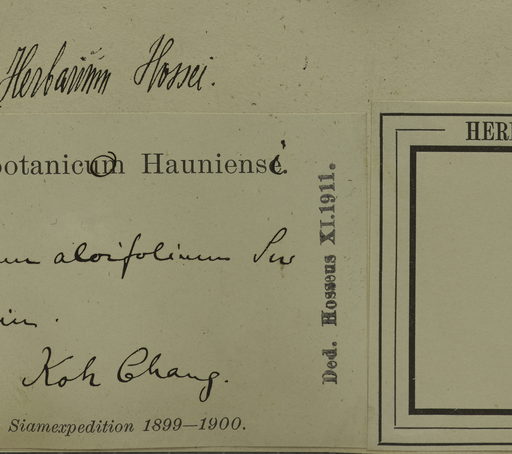 Herbarium Hossei.
botanicum Hauniense.
um aloifolium Sw
Koh Chang.
Siamexpedition 1899—1900.
Ded. Hosseus XI.1911.
HER